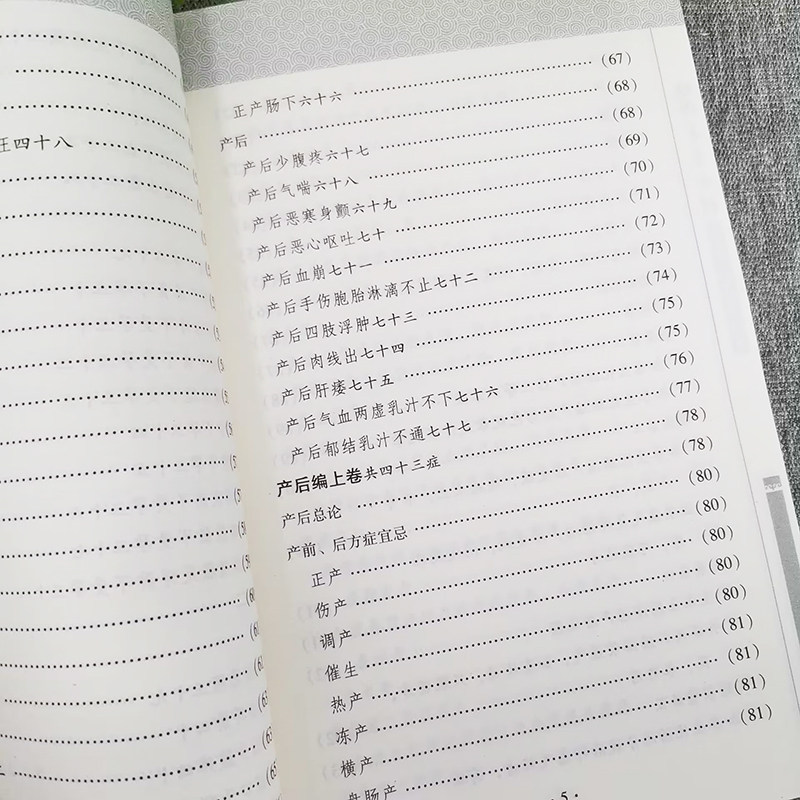 四十八
正产肠下六十六 …… (67)
产后 …… (68)
产后少腹疼六十七 …… (68)
产后气喘六十八 …… (69)
产后恶寒身颤六十九 …… (70)
产后恶心呕吐七十 …… (71)
产后血崩七十一 …… (72)
产后手伤胞胎淋漓不止七十二 …… (73)
产后四肢浮肿七十三 …… (74)
产后肉线出七十四 …… (75)
产后肝痿七十五 …… (75)
产后气血两虚乳汁不下七十六 …… (76)
产后郁结乳汁不通七十七 …… (77)
产后编上卷共四十三症 …… (78)
产后总论 …… (78)
产前、后方症宜忌 …… (80)
正产 …… (80)
伤产 …… (80)
调产 …… (80)
催生 …… (80)
热产 …… (81)
冻产 …… (81)
横产 …… (81)
盘肠产 …… (81)